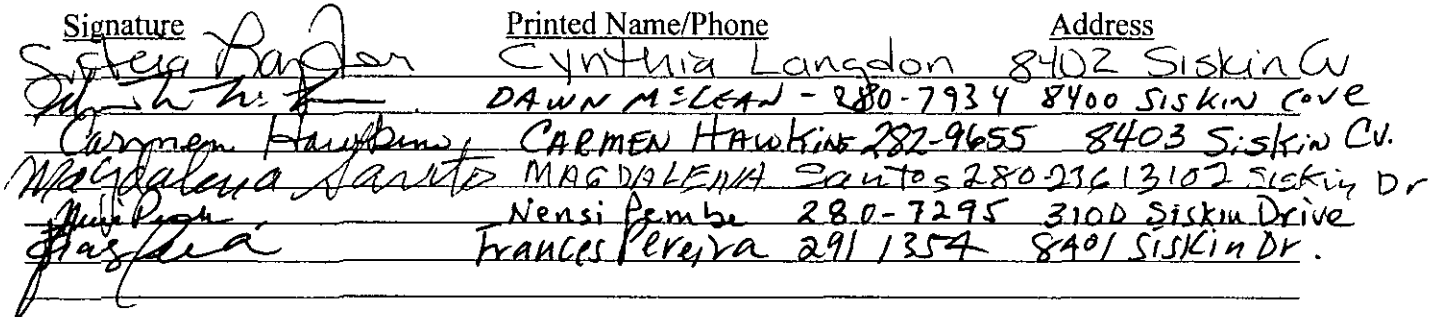 Signature Printed Name/Phone Address
Cynthia Langdon 8402 Siskin Cv
DAWN McLEAN - 280-7934 8400 SISKIN COVE
Carmen Hawkins, CARMEN HAWKINS 282-9655 8403 Siskin Cv.
Magdalena Santos MAGDALENA Santos 280-2361 3102 Siskin Dr
Nensi Pembe 280-7295 3100 Siskin Drive
Frances Pereira 291 1354 8401 Siskin Dr.